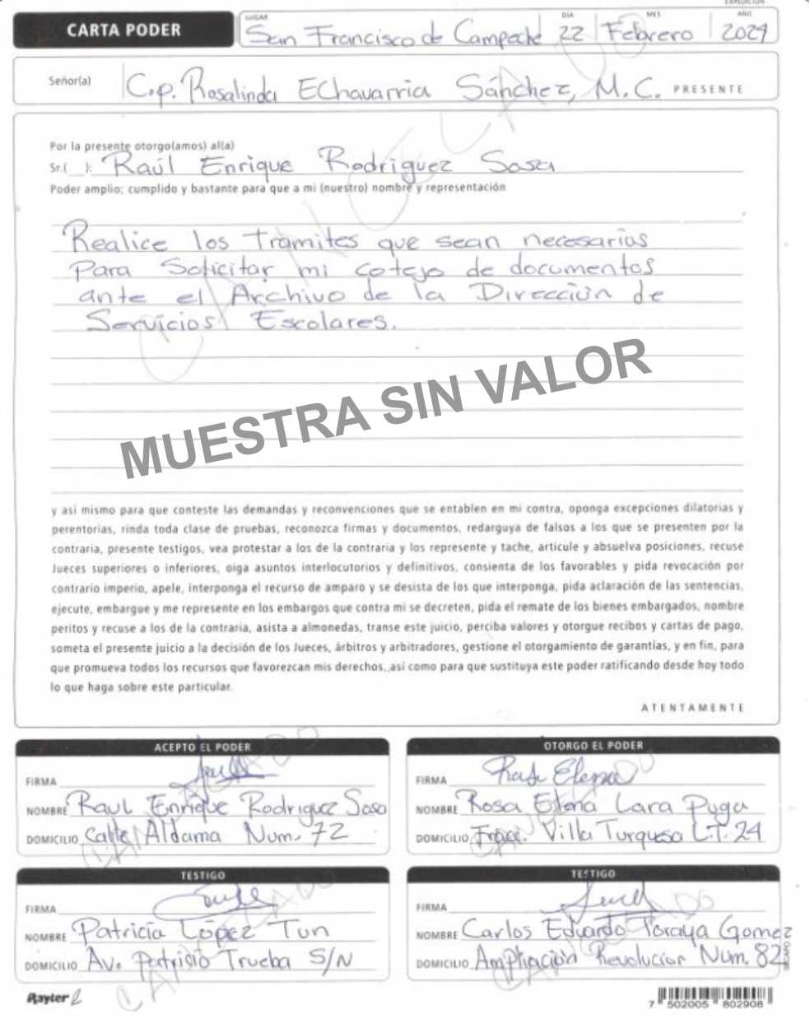 EXPEDICIÓN
CARTA PODER
LUGAR DÍA MES AÑO
San Francisco de Campeche 22 Febrero 2021
Señor(a) C.p. Rosalinda EChavarria Sánchez, M.C. PRESENTE
Por la presente otorgo(amos) al(a)
Sr.( ): Raúl Enrique Rodriguez Sosa
Poder amplio; cumplido y bastante para que a mi (nuestro) nombre y representación
Realice los tramites que sean necesarios
Para Solicitar mi cotejo de documentos
ante el Archivo de la Dirección de
Servicios Escolares.
CANCELADO
MUESTRA SIN VALOR
y asi mismo para que conteste las demandas y reconvenciones que se entablen en mi contra, oponga excepciones dilatorias y
perentorias, rinda toda clase de pruebas, reconozca firmas y documentos, redarguya de falsos a los que se presenten por la
contraria, presente testigos, vea protestar a los de la contraria y los represente y tache, articule y absuelva posiciones, recuse
Jueces superiores o inferiores, oiga asuntos interlocutorios y definitivos, consienta de los favorables y pida revocación por
contrario imperio, apele, interponga el recurso de amparo y se desista de los que interponga, pida aclaración de las sentencias,
ejecute, embargue y me represente en los embargos que contra mi se decreten, pida el remate de los bienes embargados, nombre
peritos y recuse a los de la contraria, asista a almonedas, transe este juicio, perciba valores y otorgue recibos y cartas de pago,
someta el presente juicio a la decisión de los Jueces, árbitros y arbitradores, gestione el otorgamiento de garantías, y en fin, para
que promueva todos los recursos que favorezcan mis derechos, así como para que sustituya este poder ratificando desde hoy todo
lo que haga sobre este particular.
ATENTAMENTE
ACEPTO EL PODER
FIRMA
NOMBRE Raul Enrique Rodriguez Sosa
DOMICILIO Calle Aldama Num. 72
CANCELADO
OTORGO EL PODER
FIRMA Rosa Elena
NOMBRE Rosa Elena Lara Puga
DOMICILIO Fracc. Villa Turquesa LT. 24
CANCELADO
TESTIGO
FIRMA
NOMBRE Patricia López Tun
DOMICILIO Av. Patrisio Trueba S/N
CANCELADO
TESTIGO
FIRMA
NOMBRE Carlos Eduardo Toraya Gomez
DOMICILIO Ampliación Revolucion Num. 82
CANCELADO
Rayter
7 502005 802908